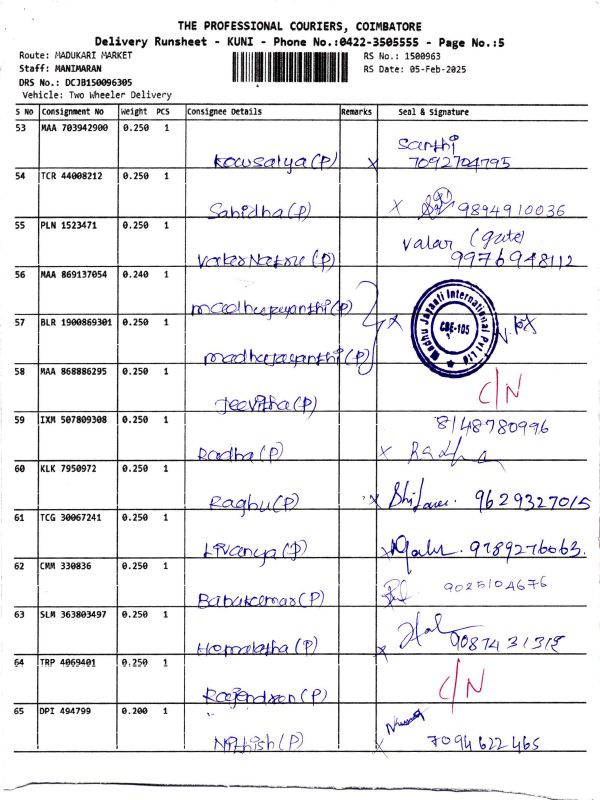 THE PROFESSIONAL COURIERS, COIMBATORE
Delivery Runsheet - KUNI - Phone No.:0422-3505555 - Page No.:5
Route: MADUKARI MARKET RS No.: 1500963
Staff: MANIMARAN RS Date: 05-Feb-2025
DRS No.: DCJB150096305
Vehicle: Two Wheeler Delivery
S No Consignment No Weight PCS Consignee Details Remarks Seal & Signature
53 MAA 703942900 0.250 1
Santhi
Kowsalya (P) x 7092704795
54 TCR 44008212 0.250 1
Sahidha (P) x 9894910036
55 PLN 1523471 0.250 1
Valar (gate)
(P) 9976948112
56 MAA 869137054 0.240 1
madhujayanthi (P)
57 BLR 1900869301 0.250 1 x Madhu Jayanti International Pvt Ltd
CBE-105
madhujayanthi (P)
58 MAA 868886295 0.250 1
Jeevitha (P) C/N
59 IXM 507809308 0.250 1 8148780996
Radha (P) x Radha
60 KLK 7950972 0.250 1
Raghu (P) x 9629327015
61 TCG 30067241 0.250 1
Livanya (P) x 9789276063.
62 CMM 330836 0.250 1 9025104676
Babukumar (P)
63 SLM 363803497 0.250 1
Hemalatha (P) x 9087431319
64 TRP 4069401 0.250 1
Rajendran (P) C/N
65 DPI 494799 0.200 1
Nithish (P) x 7094622465